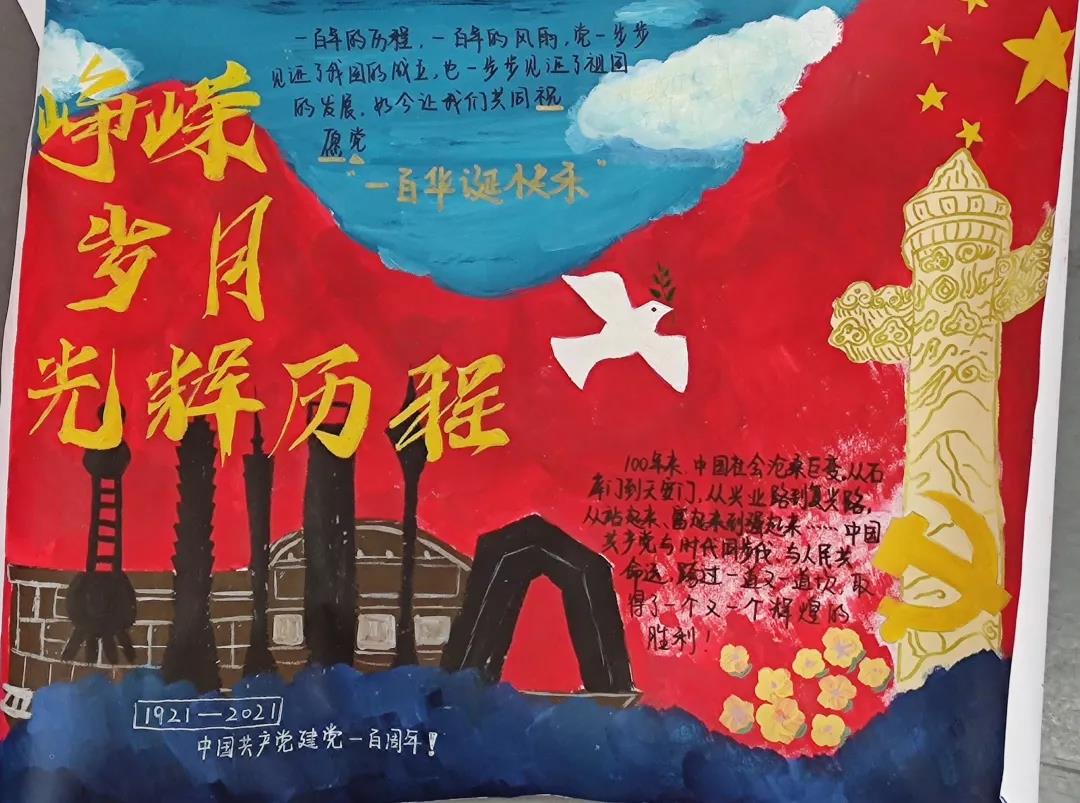 一百年的历程,一百年的风雨,党一步步
见证了我国的成立,也一步步见证了祖国
的发展.如今让我们共同祝
愿党
"一百华诞快乐"
峥嵘
岁月
光辉历程
100年来、中国社会沧桑巨变,从石
库门到天安门,从兴业路到复兴路,
从站起来、富起来到强起来……中国
共产党与时代同步伐、与人民共
命运,跨过一道又一道坎,取
得了一个又一个辉煌的
胜利!
1921—2021
中国共产党建党一百周年!